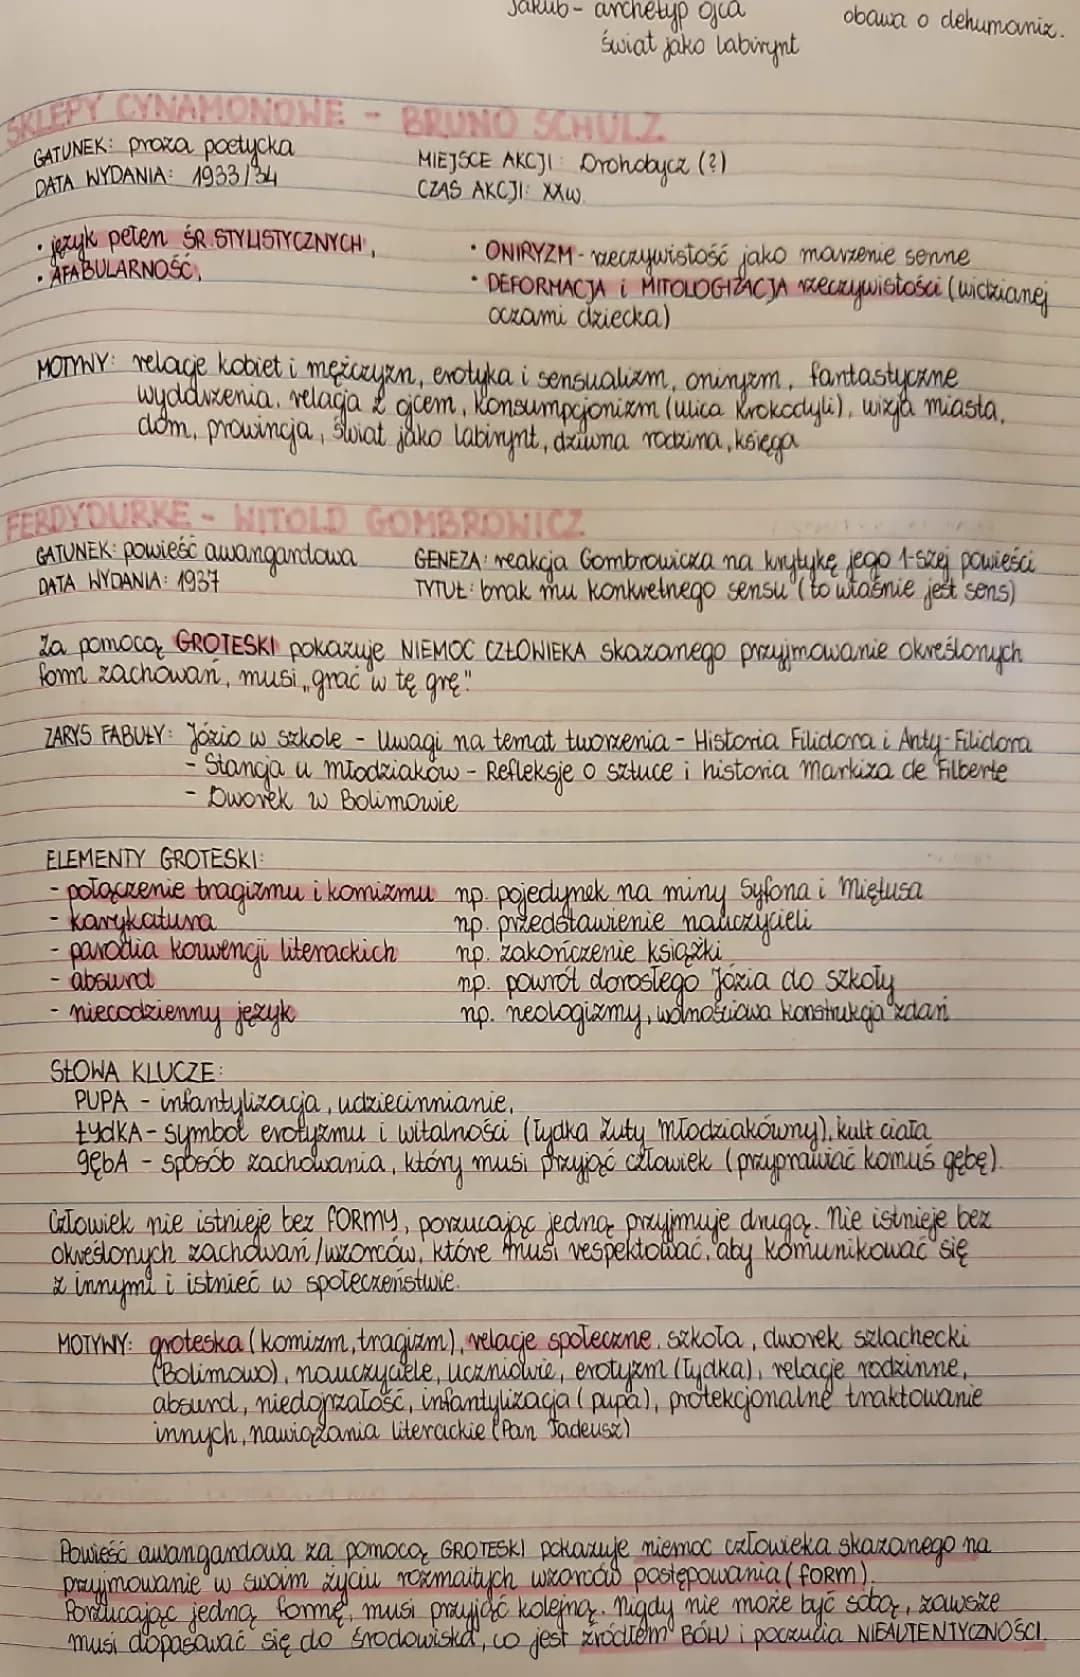 Jakub - archetyp ojca
świat jako labirynt
obawa o dehumaniz.
SKLEPY CYNAMONOWE - BRUNO SCHULZ
GATUNEK: proza poetycka
DATA WYDANIA: 1933/34
MIEJSCE AKCJI: Drohobycz (?)
CZAS AKCJI: XXw.
• język pełen ŚR. STYLISTYCZNYCH,
• AFABULARNOŚĆ,
• ONIRYZM - rzeczywistość jako marzenie senne
• DEFORMACJA i MITOLOGIZACJA rzeczywistości (widzianej
oczami dziecka)
MOTYWY: relacje kobiet i mężczyzn, erotyka i sensualizm, oniryzm, fantastyczne
wydarzenia, relacja z ojcem, konsumpcjonizm (ulica Krokodyli), wizja miasta,
dom, prowincja, świat jako labirynt, dziwna rodzina, księga
FERDYDURKE - WITOLD GOMBROWICZ
GATUNEK: powieść awangardowa
DATA WYDANIA: 1937
GENEZA: reakcja Gombrowicza na krytykę jego 1-szej powieści
TYTUŁ: brak mu konkretnego sensu (to właśnie jest sens)
Za pomocą GROTESKI pokazuje NIEMOC CZŁOWIEKA skazanego przyjmowanie określonych
form zachowań, musi „grać w tę grę"
ZARYS FABUŁY: Józio w szkole - Uwagi na temat tworzenia - Historia Filidora i Anty-Filidora
- Stancja u młodziaków - Refleksje o sztuce i historia markiza de Filberte
- Dworek w Bolimowie
ELEMENTY GROTESKI:
- połączenie tragizmu i komizmu np. pojedynek na miny Syfona i Miętusa
- karykatura np. przedstawienie nauczycieli
- parodia konwencji literackich np. zakończenie książki
- absurd np. powrót dorosłego Józia do szkoły
- niecodzienny język np. neologizmy, wolnościowa konstrukcja zdań
SŁOWA KLUCZE:
PUPA - infantylizacja, udziecinnianie,
ŁYDKA - symbol erotyzmu i witalności (łydka Zuty Młodziakówny), kult ciała
GĘBA - sposób zachowania, który musi przyjąć człowiek (przyprawiać komuś gębę).
Człowiek nie istnieje bez FORMY, porzucając jedną przyjmuje drugą. Nie istnieje bez
określonych zachowań/wzorców, które musi respektować, aby komunikować się
z innymi i istnieć w społeczeństwie.
MOTYWY: groteska (komizm, tragizm), relacje społeczne, szkoła, dworek szlachecki
(Bolimowo), nauczyciele, uczniowie, erotyzm (łydka), relacje rodzinne,
absurd, niedojrzałość, infantylizacja (pupa), protekcjonalne traktowanie
innych, nawiązania literackie (Pan Tadeusz)
Powieść awangardowa za pomocą GROTESKI pokazuje niemoc człowieka skazanego na
przyjmowanie w swoim życiu rozmaitych wzorców postępowania (FORM).
Porzucając jedną formę, musi przyjąć kolejną. Nigdy nie może być sobą, zawsze
musi dopasować się do środowiska, co jest źródłem BÓLU i poczucia NIEAUTENTYCZNOŚCI.